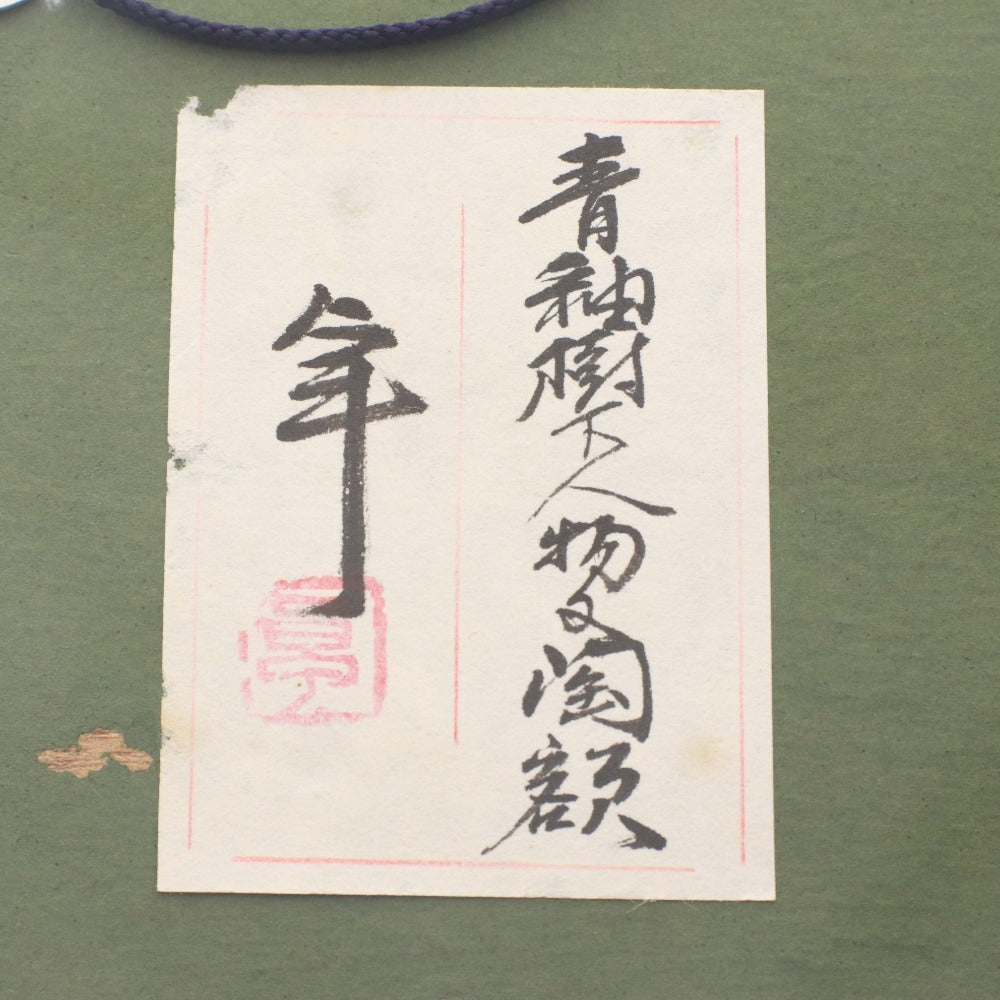 青釉樹下人物文陶額
年